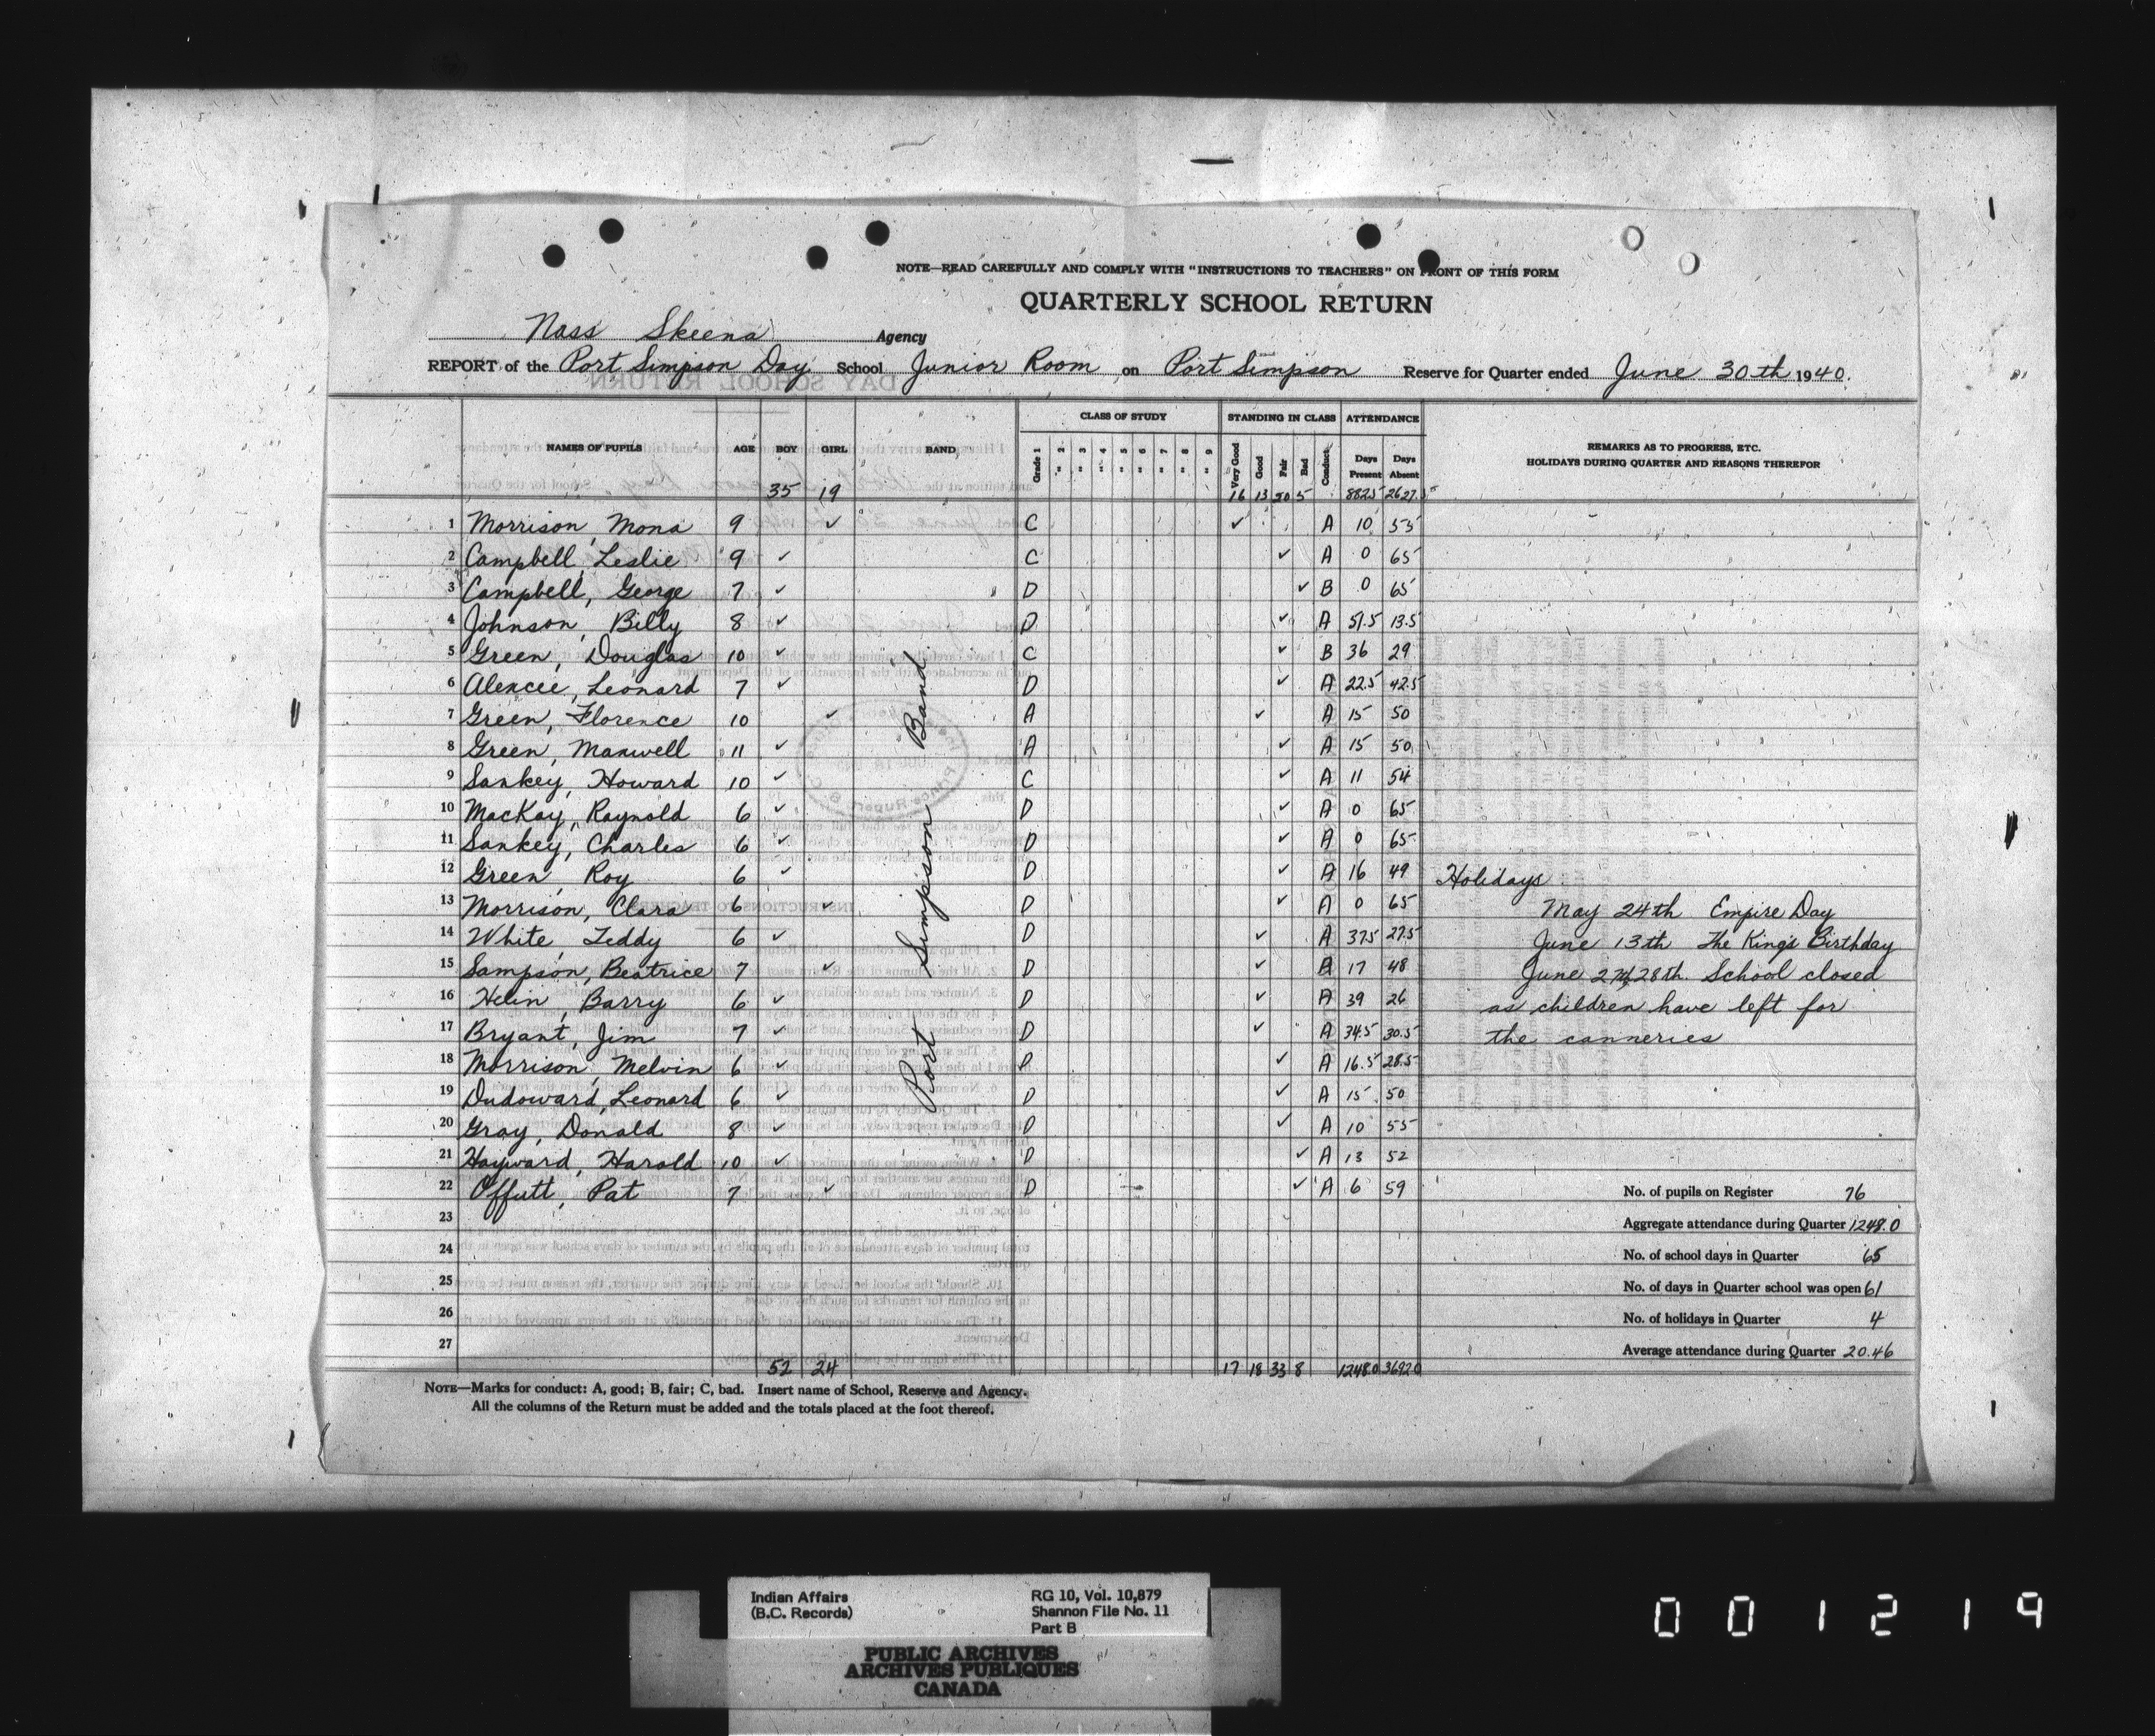 NOTE—READ CAREFULLY AND COMPLY WITH "INSTRUCTIONS TO TEACHERS" ON FRONT OF THIS FORM
QUARTERLY SCHOOL RETURN
Nass Skeena Agency
REPORT of the Port Simpson Day School Junior Room on Port Simpson Reserve for Quarter ended June 30th 1940.
NAMES OF PUPILS AGE BOY GIRL BAND CLASS OF STUDY STANDING IN CLASS ATTENDANCE REMARKS AS TO PROGRESS, ETC.
HOLIDAYS DURING QUARTER AND REASONS THEREFOR
Grade 1 " 2 " 3 " 4 " 5 " 6 " 7 " 8 " 9 Very Good Good Fair Bad Conduct Days Present Days Absent
35 19 16 13 20 5 882.5 2627.5
1 Morrison, Mona 9 ✓ C ✓ A 10 55
2 Campbell, Leslie 9 ✓ C ✓ A 0 65
3 Campbell, George 7 ✓ D ✓ B 0 65
4 Johnson, Billy 8 ✓ D ✓ A 51.5 13.5
5 Green, Douglas 10 ✓ C ✓ B 36 29
6 Alexcee, Leonard 7 ✓ D ✓ A 22.5 42.5
7 Green, Florence 10 ✓ A ✓ A 15 50
8 Green, Maxwell 11 ✓ A ✓ A 15 50
9 Sankey, Howard 10 ✓ C ✓ A 11 54
10 MacKay, Raynold 6 ✓ D ✓ A 0 65
11 Sankey, Charles 6 ✓ D ✓ A 0 65
12 Green, Roy 6 ✓ D ✓ A 16 49
13 Morrison, Clara 6 ✓ D ✓ A 0 65
14 White, Teddy 6 ✓ D ✓ A 37.5 27.5
15 Sampson, Beatrice 7 ✓ D ✓ A 17 48
16 Helin, Barry 6 ✓ D ✓ A 39 26
17 Bryant, Jim 7 ✓ D ✓ A 34.5 30.5
18 Morrison, Melvin 6 ✓ D ✓ A 16.5 28.5
19 Dudoward, Leonard 6 ✓ D ✓ A 15 50
20 Gray, Donald 8 ✓ D ✓ A 10 55
21 Hayward, Harold 10 ✓ D ✓ A 13 52
22 Offutt, Pat 7 ✓ D ✓ A 6 59
23
24
25
26
27
52 24 17 18 33 8 1248.0 3692.0
Port Simpson Band
Holidays
May 24th Empire Day
June 13th The King's Birthday
June 27, 28th. School closed
as children have left for
the canneries
No. of pupils on Register 76
Aggregate attendance during Quarter 1248.0
No. of school days in Quarter 65
No. of days in Quarter school was open 61
No. of holidays in Quarter 4
Average attendance during Quarter 20.46
NOTE—Marks for conduct: A, good; B, fair; C, bad. Insert name of School, Reserve and Agency.
All the columns of the Return must be added and the totals placed at the foot thereof.
Indian Affairs
(B.C. Records)
RG 10, Vol. 10,879
Shannon File No. 11
Part B
PUBLIC ARCHIVES
ARCHIVES PUBLIQUES
CANADA
001219